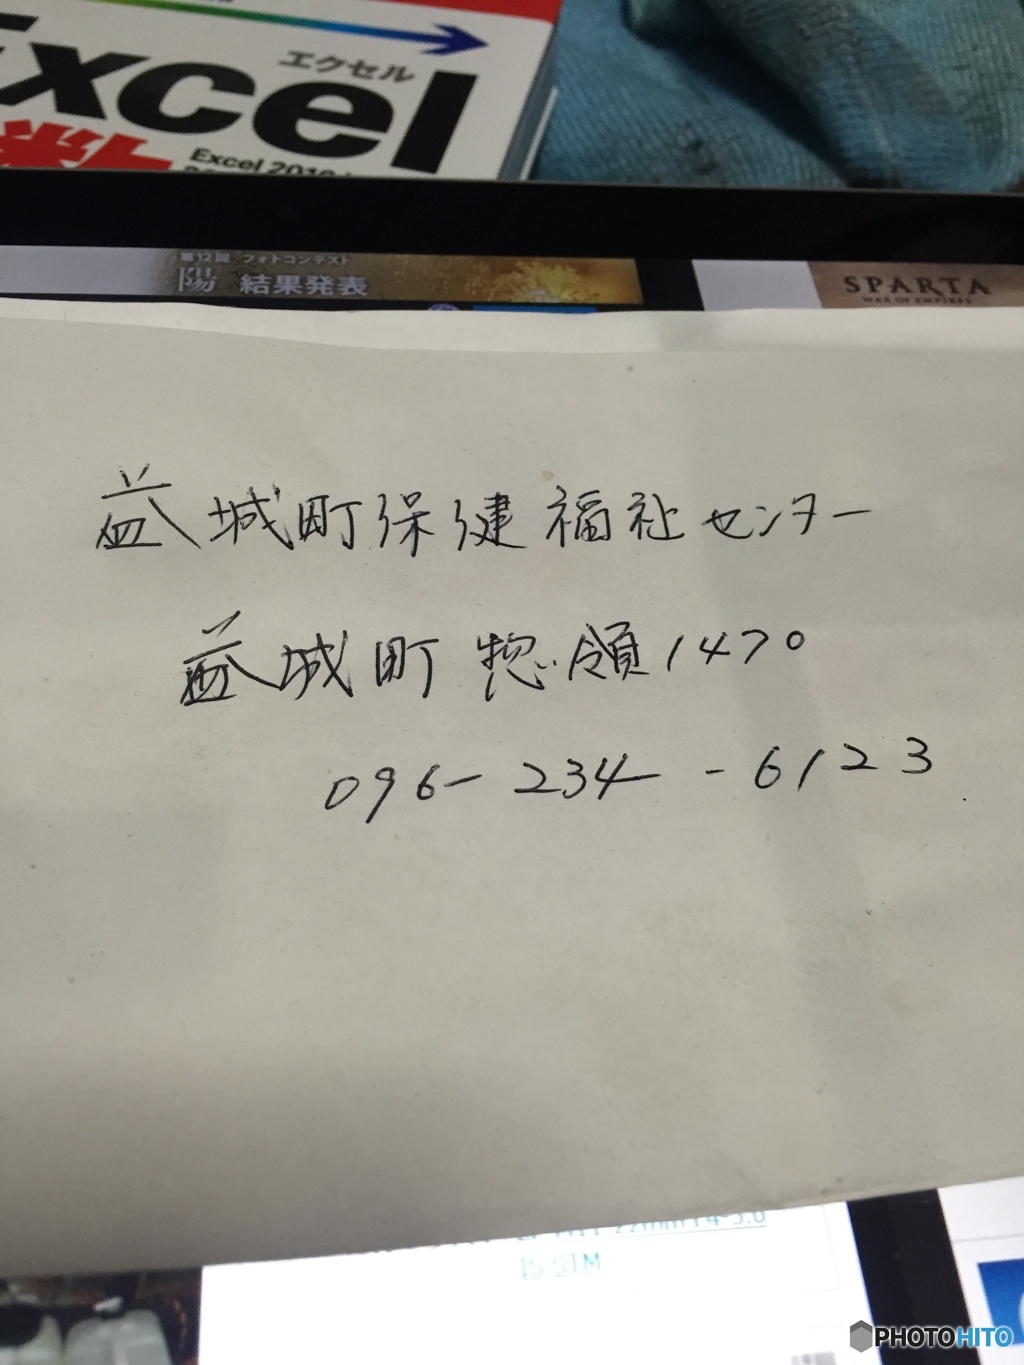 エクセル
Excel
Excel 2010
第12回 フォトコンテスト
陽 結果発表
SPARTA
WAR OF EMPIRES
益城町保健福祉センター
益城町惣領1470
096-234-6123
IS STM
PHOTOHITO